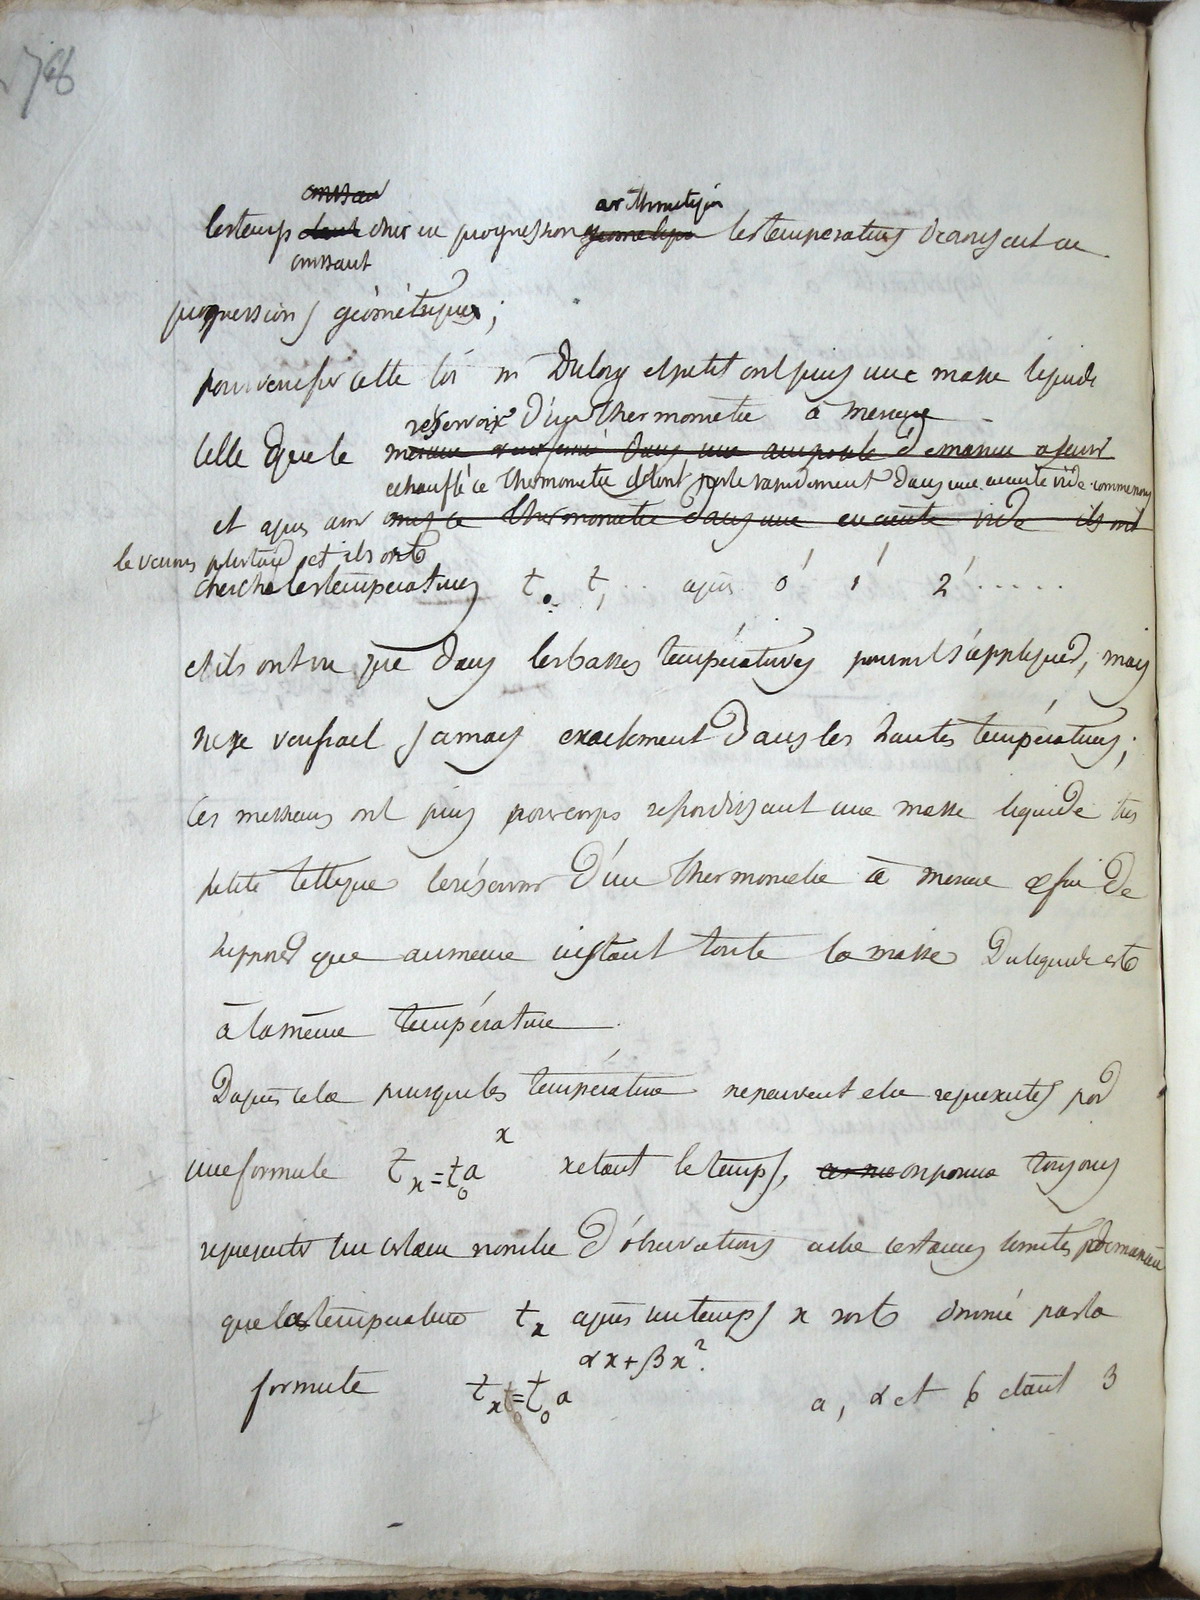 768
croissan
arithmetiqu
les temps etant chez en progression geometrique les temperatures decroissent en
croissant
progressions géométriques ;
pour verifier cette loi m Dulong et petit ont pris une masse liquide
reservoir d'un thermometre à mercure
telle que le mercure renfermé dans une ampoule d'emanier a servir
echauffé ce thermometre dont porte rapidement dans une enceinte vide comme nous
et apres avoir mis ce thermometre dans une enceinte vide ils ont
le verrons plus tard et ils ont
cherché les temperatures t0 t, .. apres 0' 1' 2' .....
et ils ont vu que dans les basses températures pouvait s'appliquer, mais
ne se verifiait jamais exactement dans les hautes températures ;
Ces messieurs ont pris pour corps refroidissant une masse liquide tres
petite telle que le réservoir d'un thermometre à mercure afin de
supposer que au meme instant toute la masse du liquide est
à la même température .
D'apres cela puisque les température ne peuvent etre representés par
une formule tx = t0 a^x x etant le temps, on pourra toujours
representer un certain nombre d'observations entre certaines limites de maniere
que la temperature tx apres un temps x sort donnée par la
formule tx = t0 a^αx+βx². a, α et 6 etant 3